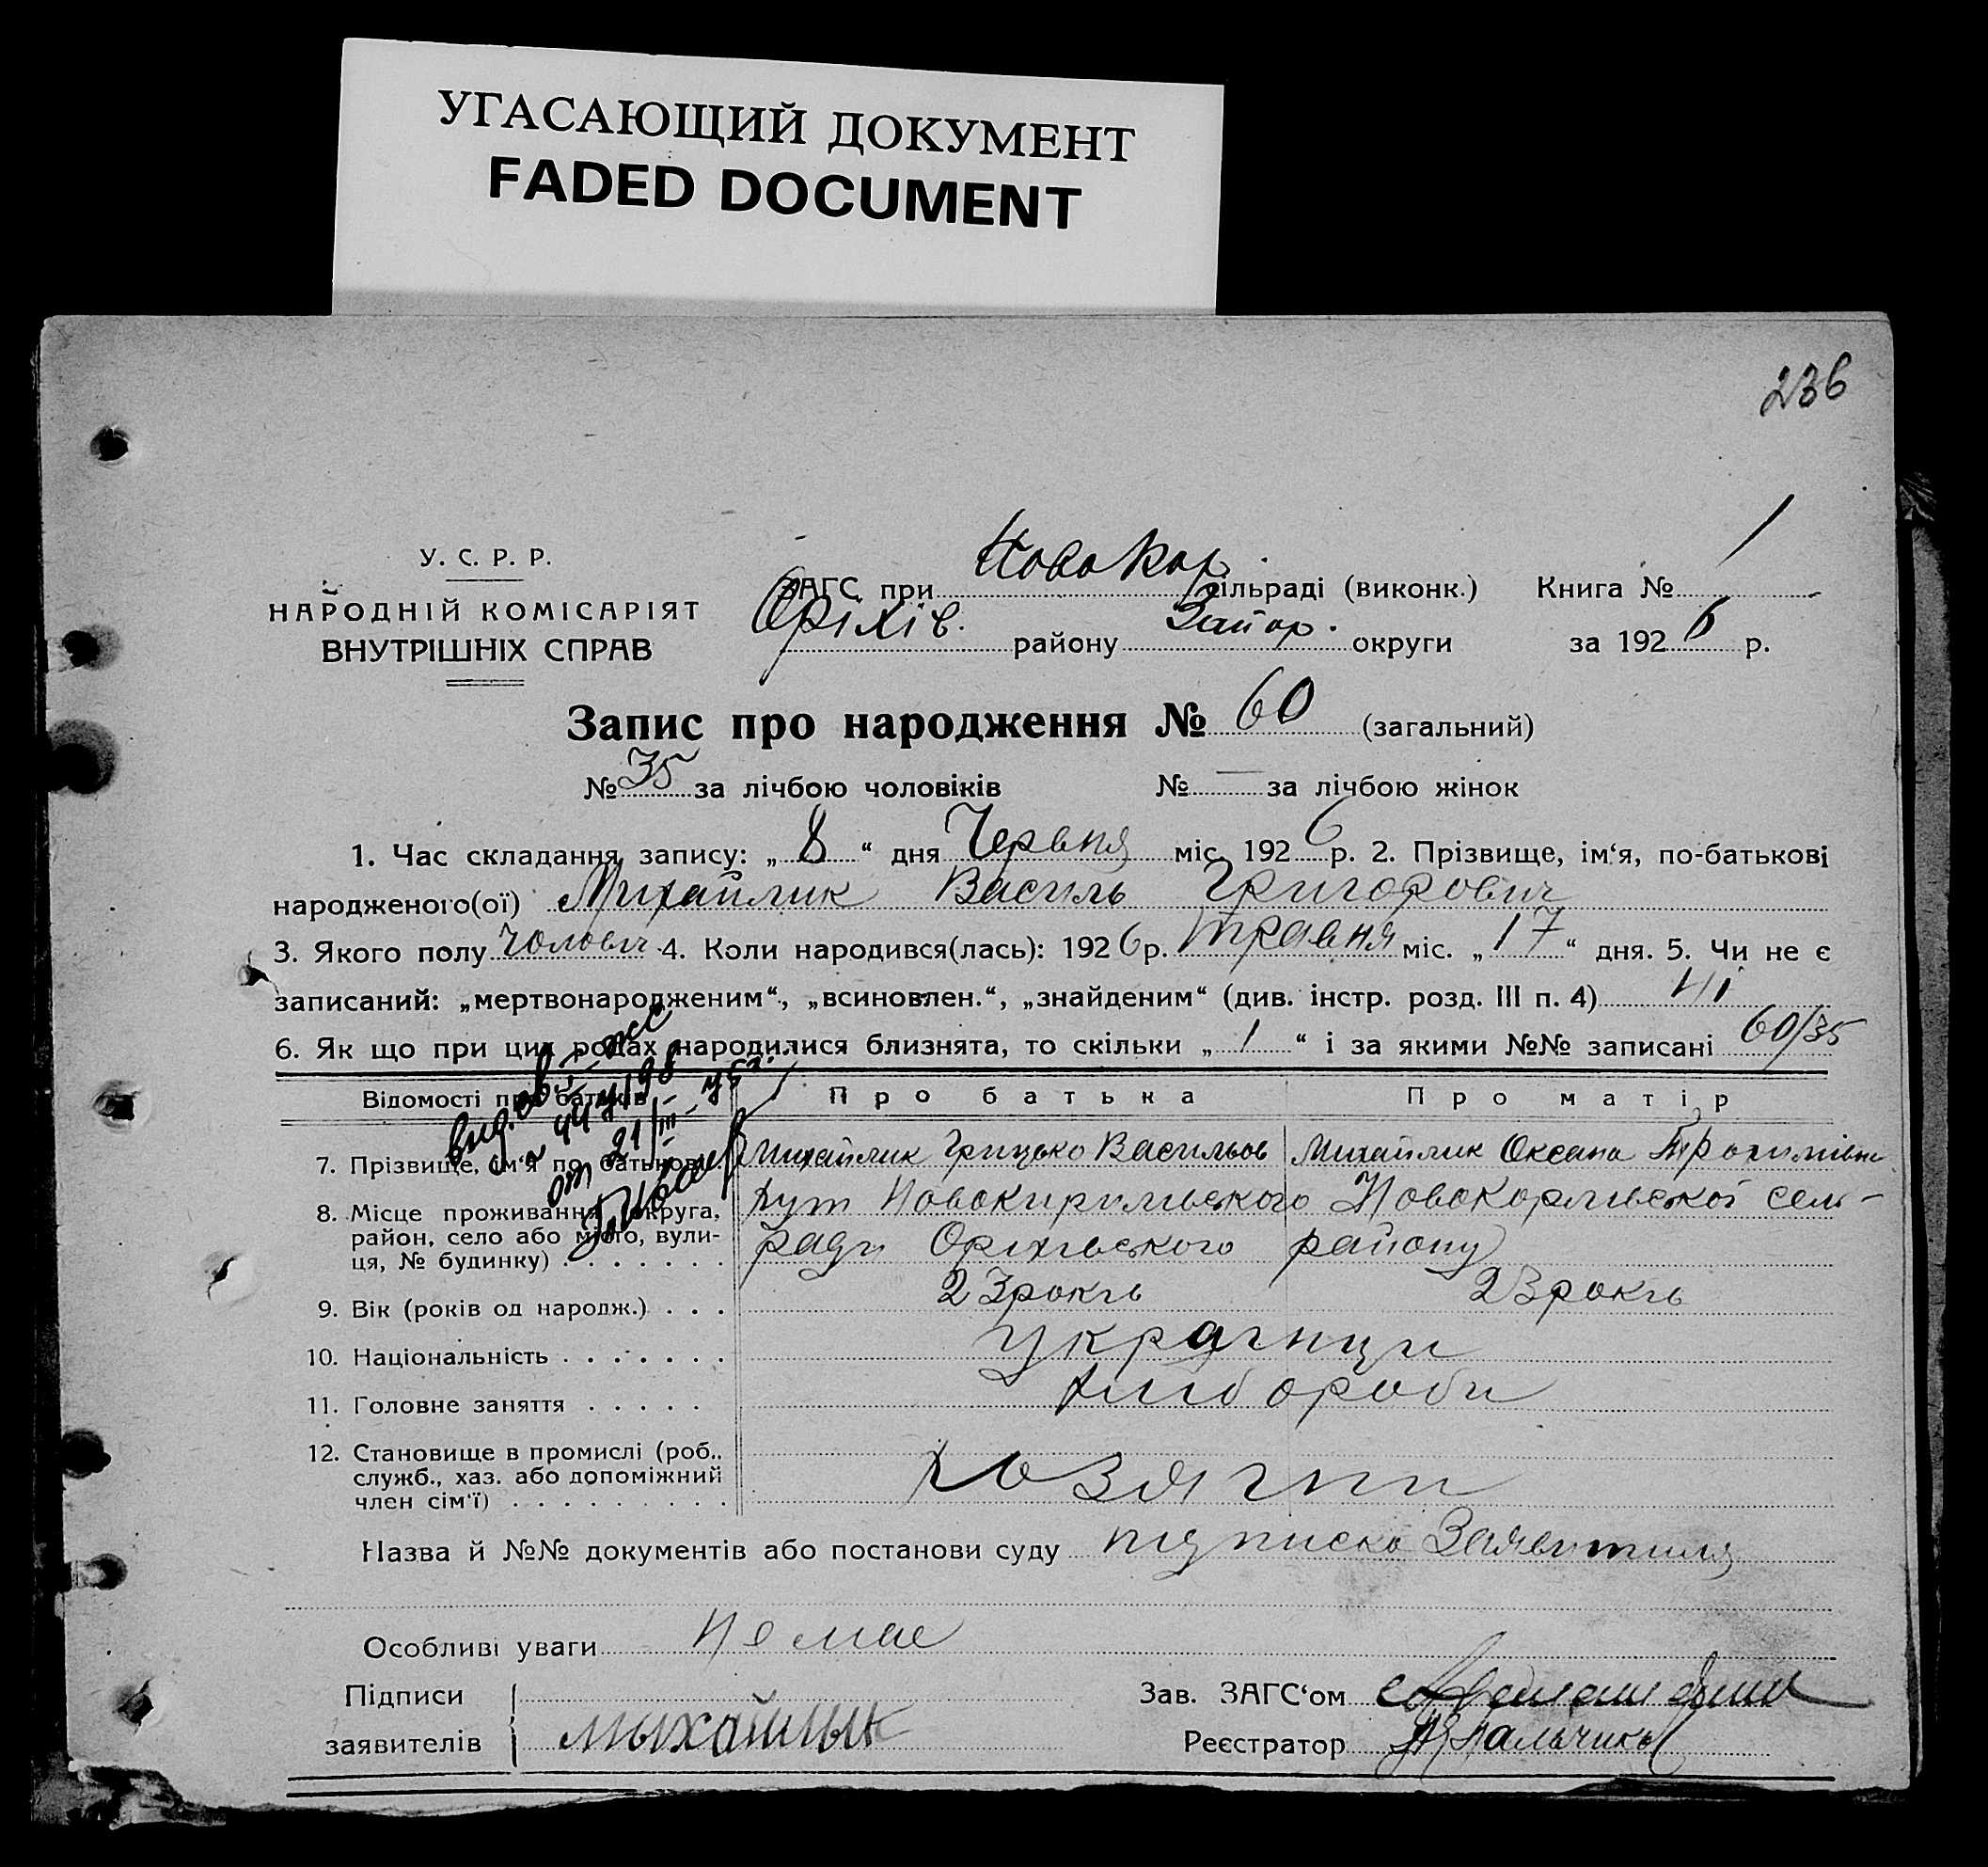 УГАСАЮЩИЙ ДОКУМЕНТ
FADED DOCUMENT
236
У. С. Р. Р.
НАРОДНІЙ КОМІСАРІЯТ
ВНУТРІШНІХ СПРАВ
ЗАГС при Новокар. сільраді (виконк.) Книга № 1
Оріхів. району Запор. округи за 1926 р.
Запис про народження № 60 (загальний)
№ 35 за лічбою чоловіків № — за лічбою жінок
1. Час складання запису: „ 8 “ дня Червня міс. 1926 р. 2. Прізвище, ім‘я, по-батькові
народженого(ої) Михайлик Василь Григорович
3. Якого полу чоловіч. 4. Коли народився(лась): 1926 р. травня міс. „ 17 “ дня. 5. Чи не є
записаний: „мертвонародженим“, „всиновлен.“, „знайденим“ (див. інстр. розд. III п. 4) ні
6. Як що при цих родах народилися близнята, то скільки „ 1 “ і за якими №№ записані 60/35
Відомості про батьків Про батька Про матір
7. Прізвище, ім‘я по батькові Михайлик Грицько Васильов Михайлик Оксана
8. Місце проживання (округа, район, село або місто, вулиця, № будинку) . . . . . . . хут Новокирильського Новокарлівської сель-
ради Оріхівського району
9. Вік (років од народж.) . . . 23 років 23 років
10. Національність . . . . . . . українци
11. Головне заняття . . . . . хлібороби
12. Становище в промислі (роб., служб., хаз. або допоміжний член сім‘ї) . . . . . . . . . хозяїни
Назва й №№ документів або постанови суду підписка Заявителя
Особливі уваги не має
Підписи
заявителів Мыхайлык
Зав. ЗАГС‘ом
Реєстратор
от 21/III